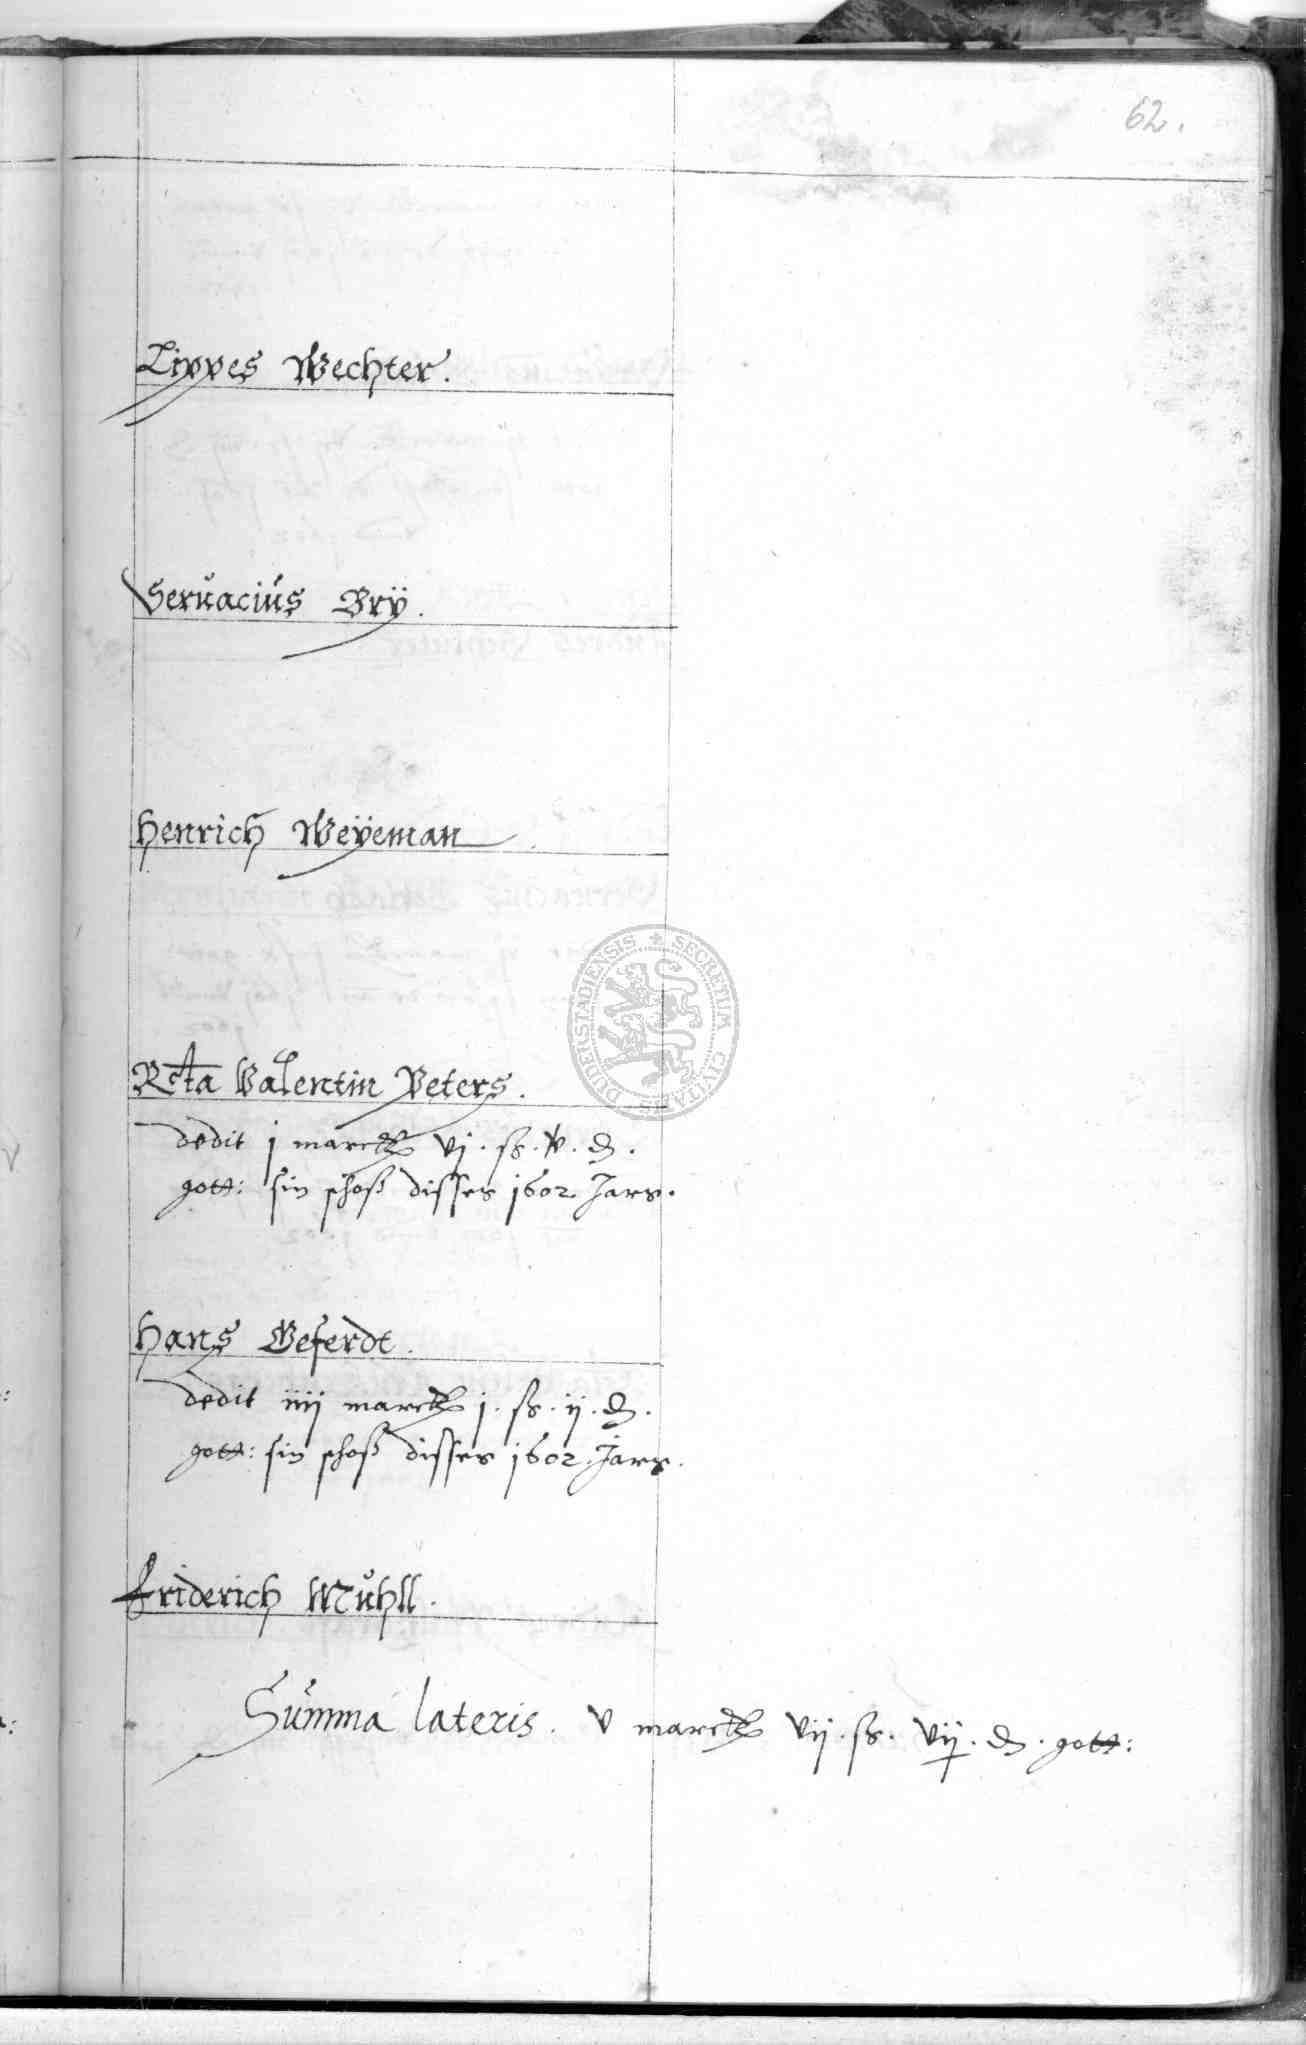 62.
Lippes Wechter.
Seruacius Brÿ.
Henrich Weÿeman.
Rcta Valentin Peters.
dedit j marck vj. ß. v. ₰.
gott: sin schoß disses 1602 Jars.
Hans Geferdt.
dedit iiij marck j. ß. ij. ₰.
gott: sin schoß disses 1602. Jars.
Friderich Mühll.
Summa lateris. v marck vij. ß. vij. ₰. gott:
SECRETUM CIVITATIS DUDERSTADIENSIS